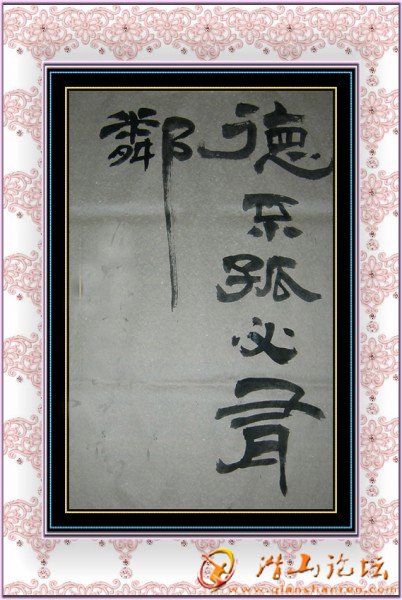 德不孤必有
鄰
潜山论坛
www.qianshanren.com